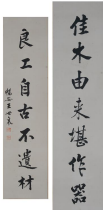 佳木由来堪作器
良工自古不遺材